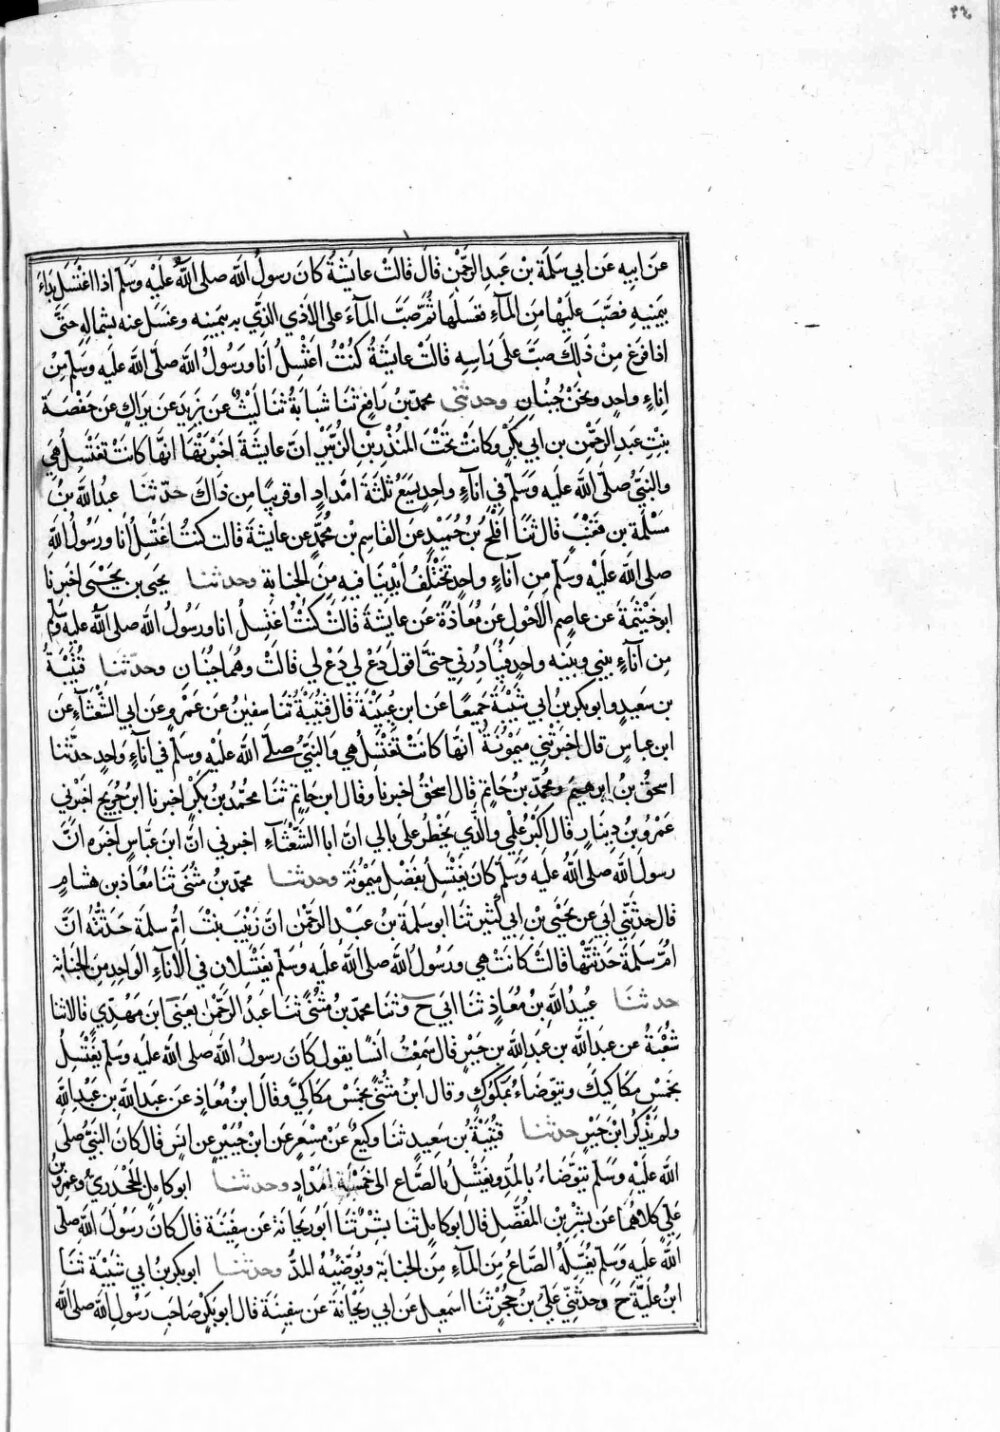 ٣٤
عن ابيه عن ابي سلمة بن عبد الرحمن قال قالت عايشة كان رسول الله صلى الله عليه وسلم اذا اغتسل بداء
بيمينه فصب عليها من المآء فغسلها ثم صب المآء على الاذي الذي به بيمينه وغسل عنه بشماله حتى
اذا فرغ من ذلك صب على راسه قالت عايشة كنت اغتسل انا ورسول الله صلى الله عليه وسلم من
اناء واحد ونحن جنبان وحدثني محمد بن رافع ثنا شبابة ثنا ليث عن يزيد عن عراك عن حفصة
بنت عبد الرحمن بن ابي بكر وكانت تحت المنذر بن الزبير ان عايشة اخبرتها انها كانت تغتسل هي
والنبي صلى الله عليه وسلم في انآء واحد يسع ثلثة امداد او قريبا من ذلك حدثنا عبد الله بن
مسلمة بن قعنب قال ثنا افلح بن حميد عن القاسم بن محمد عن عايشة قالت كنت اغتسل أنا ورسول الله
صلى الله عليه وسلم من آناء واحد تختلف أيدينا فيه من الجنابة وحدثنا يحيى بن يحيى اخبرنا
ابو خيثمة عن عاصم الاحول عن معاذة عن عايشة قالت كنت اغتسل انا ورسول الله صلى الله عليه وسلم
من آناء بيني وبينه واحد فيبادرني حتى اقول دع لي دع لي قالت وهما جنبان وحدثنا قتيبة
بن سعيد وابو بكر بن ابي شيبة جميعا عن ابن عيينة قال قتيبة ثنا سفين عن عمرو عن ابي الشعثآء عن
ابن عباس قال اخبرتني ميمونة انها كانت تغتسل هي والنبي صلى الله عليه وسلم في اناء واحد حدثنا
اسحق بن ابرهيم ومحمد بن حاتم قال اسحق اخبرنا وقال ابن حاتم ثنا محمد بن بكر اخبرنا ابن جريج اخبرني
عمرو بن دينار قال اكبر علمي والذي يخطر على بالي ان ابا الشعثآء اخبرني ان ابن عباس اخبره ان
رسول الله صلى الله عليه وسلم كان يغتسل بفضل ميمونة وحدثنا محمد بن مثنى ثنا معاذ بن هشام
قال حدثني ابي عن يحيى بن ابي كثير ثنا ابو سلمة بن عبد الرحمن ان زينب بنت ام سلمة حدثته ان
ام سلمة حدثتها قالت كانت هي ورسول الله صلى الله عليه وسلم يغتسلان في الاناء الواحد من الجنابة
حدثنا عبيد الله بن معاذ ثنا ابي ح وثنا محمد بن مثنى ثنا عبد الرحمن يعني ابن مهدي قالا ثنا
شعبة عن عبد الله بن عبد الله بن جبر قال سمعت انسا يقول كان رسول الله صلى الله عليه وسلم يغتسل
بخمس مكاكيك ويتوضاء بمكوك وقال ابن مثنى بخمس مكاكي وقال ابن معاذ عن عبد الله بن عبد الله
ولم يذكر ابن جبر حدثنا قتيبة بن سعيد ثنا وكيع عن مسعر عن ابن جبير عن انس قال كان النبي صلى
الله عليه وسلم يتوضاء بالمد ويغتسل بالصاع الى خمسة امداد وحدثنا ابو كامل الجحدري وعمرو بن
علي كلاهما عن بشر بن المفضل قال ابو كامل ثنا بشر ثنا ابو ريحانة عن سفينة قال كان رسول الله صلى
الله عليه وسلم يغسله الصاع من المآء من الجنابة ويوضيه المد وحدثنا ابو بكر بن ابي شيبة ثنا
ابن علية ح وحدثني علي بن حجر ثنا اسمعيل عن ابي ريحانة عن سفينة قال ابو بكر صاحب رسول الله صلى الله